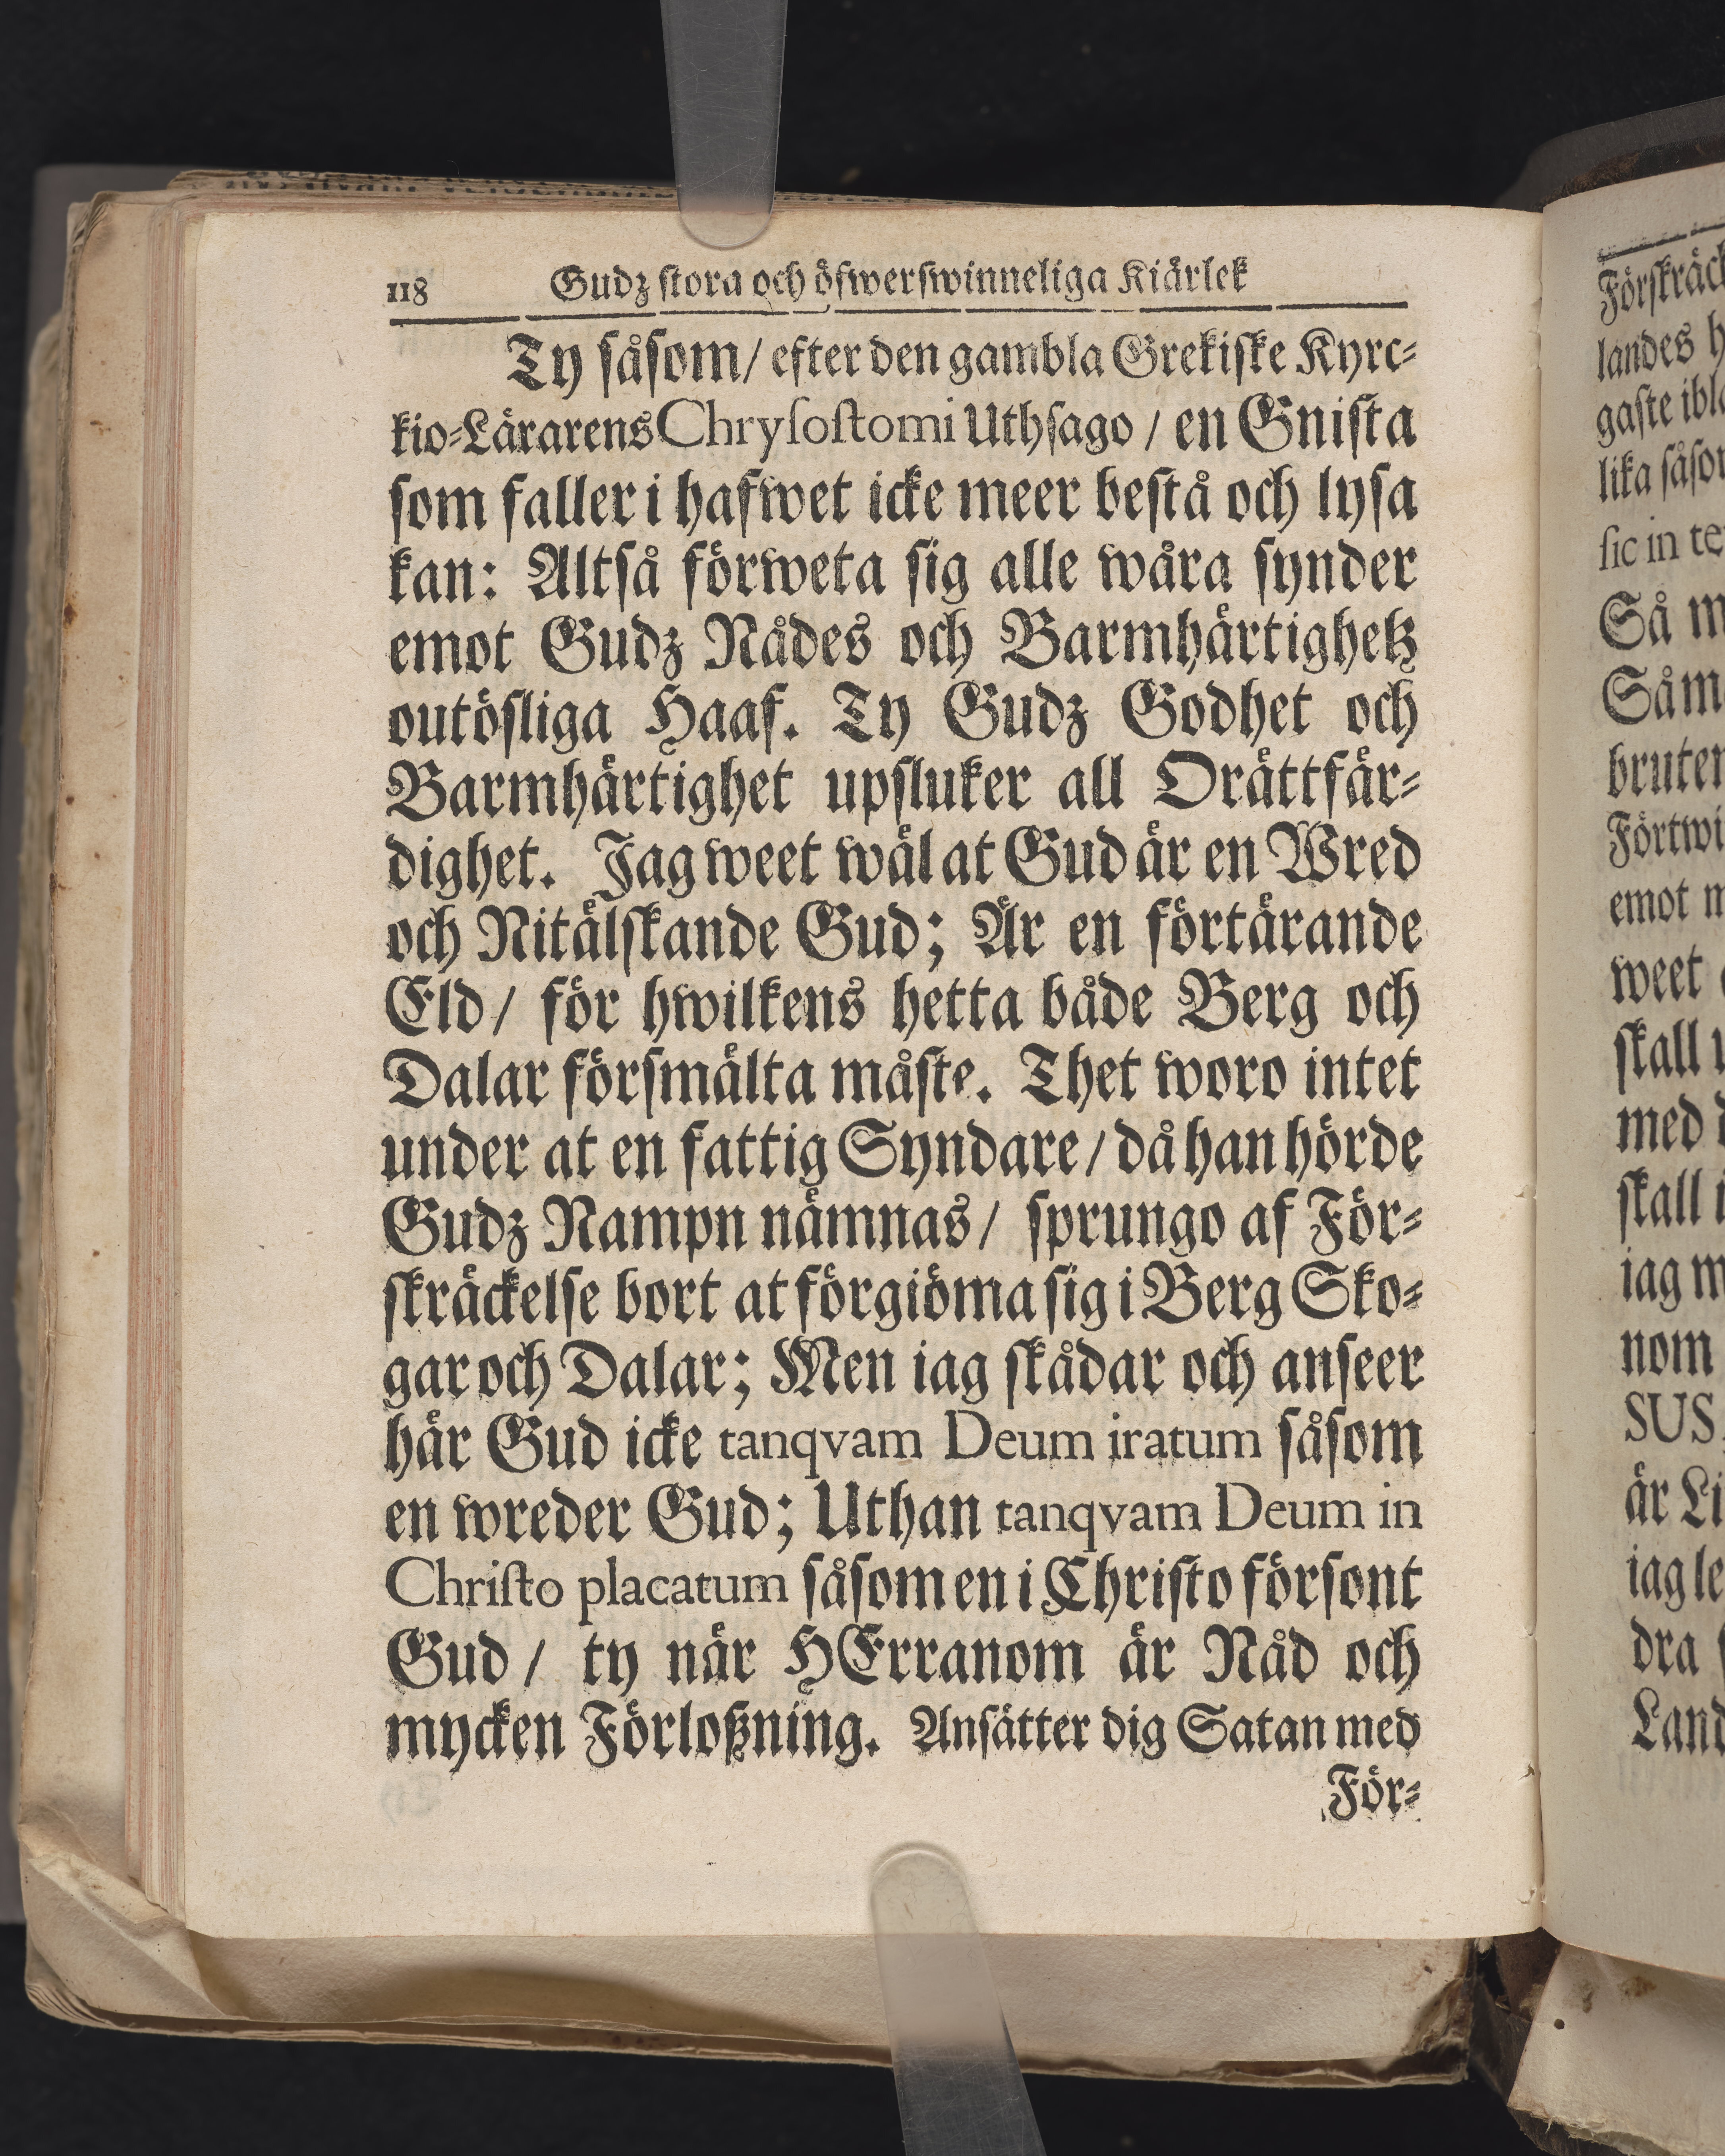 118 Gudz stora och öfwerswinneliga Kiärlek
Ty såsom/ efter den gambla Grekiske Kyrc-
kio-Lärarens Chrysostomi Uthsago / en Gnista
som faller i hafwet icke meer bestå och lysa
kan: Altså förweta sig alle wåra synder
emot Gudz Nådes och Barmhärtighetz
outösliga Haaf. Ty Gudz Godhet och
Barmhärtighet upsluker all Orättfär-
dighet. Jag weet wäl at Gud är en Wred
och Nitälskande Gud; Är en förtärande
Eld/ för hwilkens hetta både Berg och
Dalar försmälta måste. Thet woro intet
under at en fattig Syndare/ då han hörde
Gudz Nampn nämnas/ sprungo af För-
skräckelse bort at förgiöma sig i Berg Sko-
gar och Dalar; Men iag skådar och anseer
här Gud icke tanqvam Deum iratum såsom
en wreder Gud; Uthan tanqvam Deum in
Christo placatum såsom en i Christo försont
Gud/ ty när HErranom är Nåd och
mycken Förloßning. Ansätter dig Satan med
För-
Förskräck
landes h
gaste ibl
lika såso
sic in te
Så m
Såm
bruter
Förtwi
emot m
weet
skall
med d
skall i
iag m
nom
SUS
är Li
iag le
dra
Land